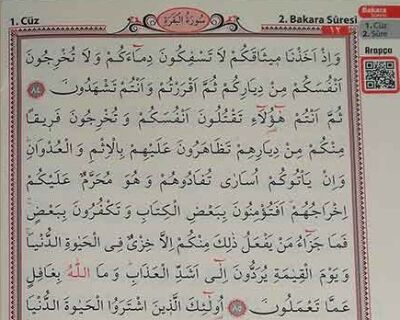 1. Cüz
سُورَةُ الْبَقَرَةِ
2. Bakara Sûresi
Bakara
Sûresi
1. Cüz
2. Sûre
Arapça
١٢
وَاِذْ اَخَذْنَا مٖيثَاقَكُمْ لَا تَسْفِكُونَ دِمَٓاءَكُمْ وَلَا تُخْرِجُونَ
اَنْفُسَكُمْ مِنْ دِيَارِكُمْ ثُمَّ اَقْرَرْتُمْ وَاَنْتُمْ تَشْهَدُونَ ٨٤
ثُمَّ اَنْتُمْ هٰٓؤُ۬لَٓاءِ تَقْتُلُونَ اَنْفُسَكُمْ وَتُخْرِجُونَ فَرٖيقًا
مِنْكُمْ مِنْ دِيَارِهِمْ تَظَاهَرُونَ عَلَيْهِمْ بِالْاِثْمِ وَالْعُدْوَانِ
وَاِنْ يَأْتُوكُمْ اُسَارٰى تُفَادُوهُمْ وَهُوَ مُحَرَّمٌ عَلَيْكُمْ
اِخْرَاجُهُمْ اَفَتُؤْمِنُونَ بِبَعْضِ الْكِتَابِ وَتَكْفُرُونَ بِبَعْضٍ
فَمَا جَزَٓاءُ مَنْ يَفْعَلُ ذٰلِكَ مِنْكُمْ اِلَّا خِزْيٌ فِي الْحَيٰوةِ الدُّنْيَا
وَيَوْمَ الْقِيٰمَةِ يُرَدُّونَ اِلٰٓى اَشَدِّ الْعَذَابِ وَمَا اللّٰهُ بِغَافِلٍ
عَمَّا تَعْمَلُونَ ٨٥ اُولٰٓئِكَ الَّذٖينَ اشْتَرَوُا الْحَيٰوةَ الدُّنْيَا